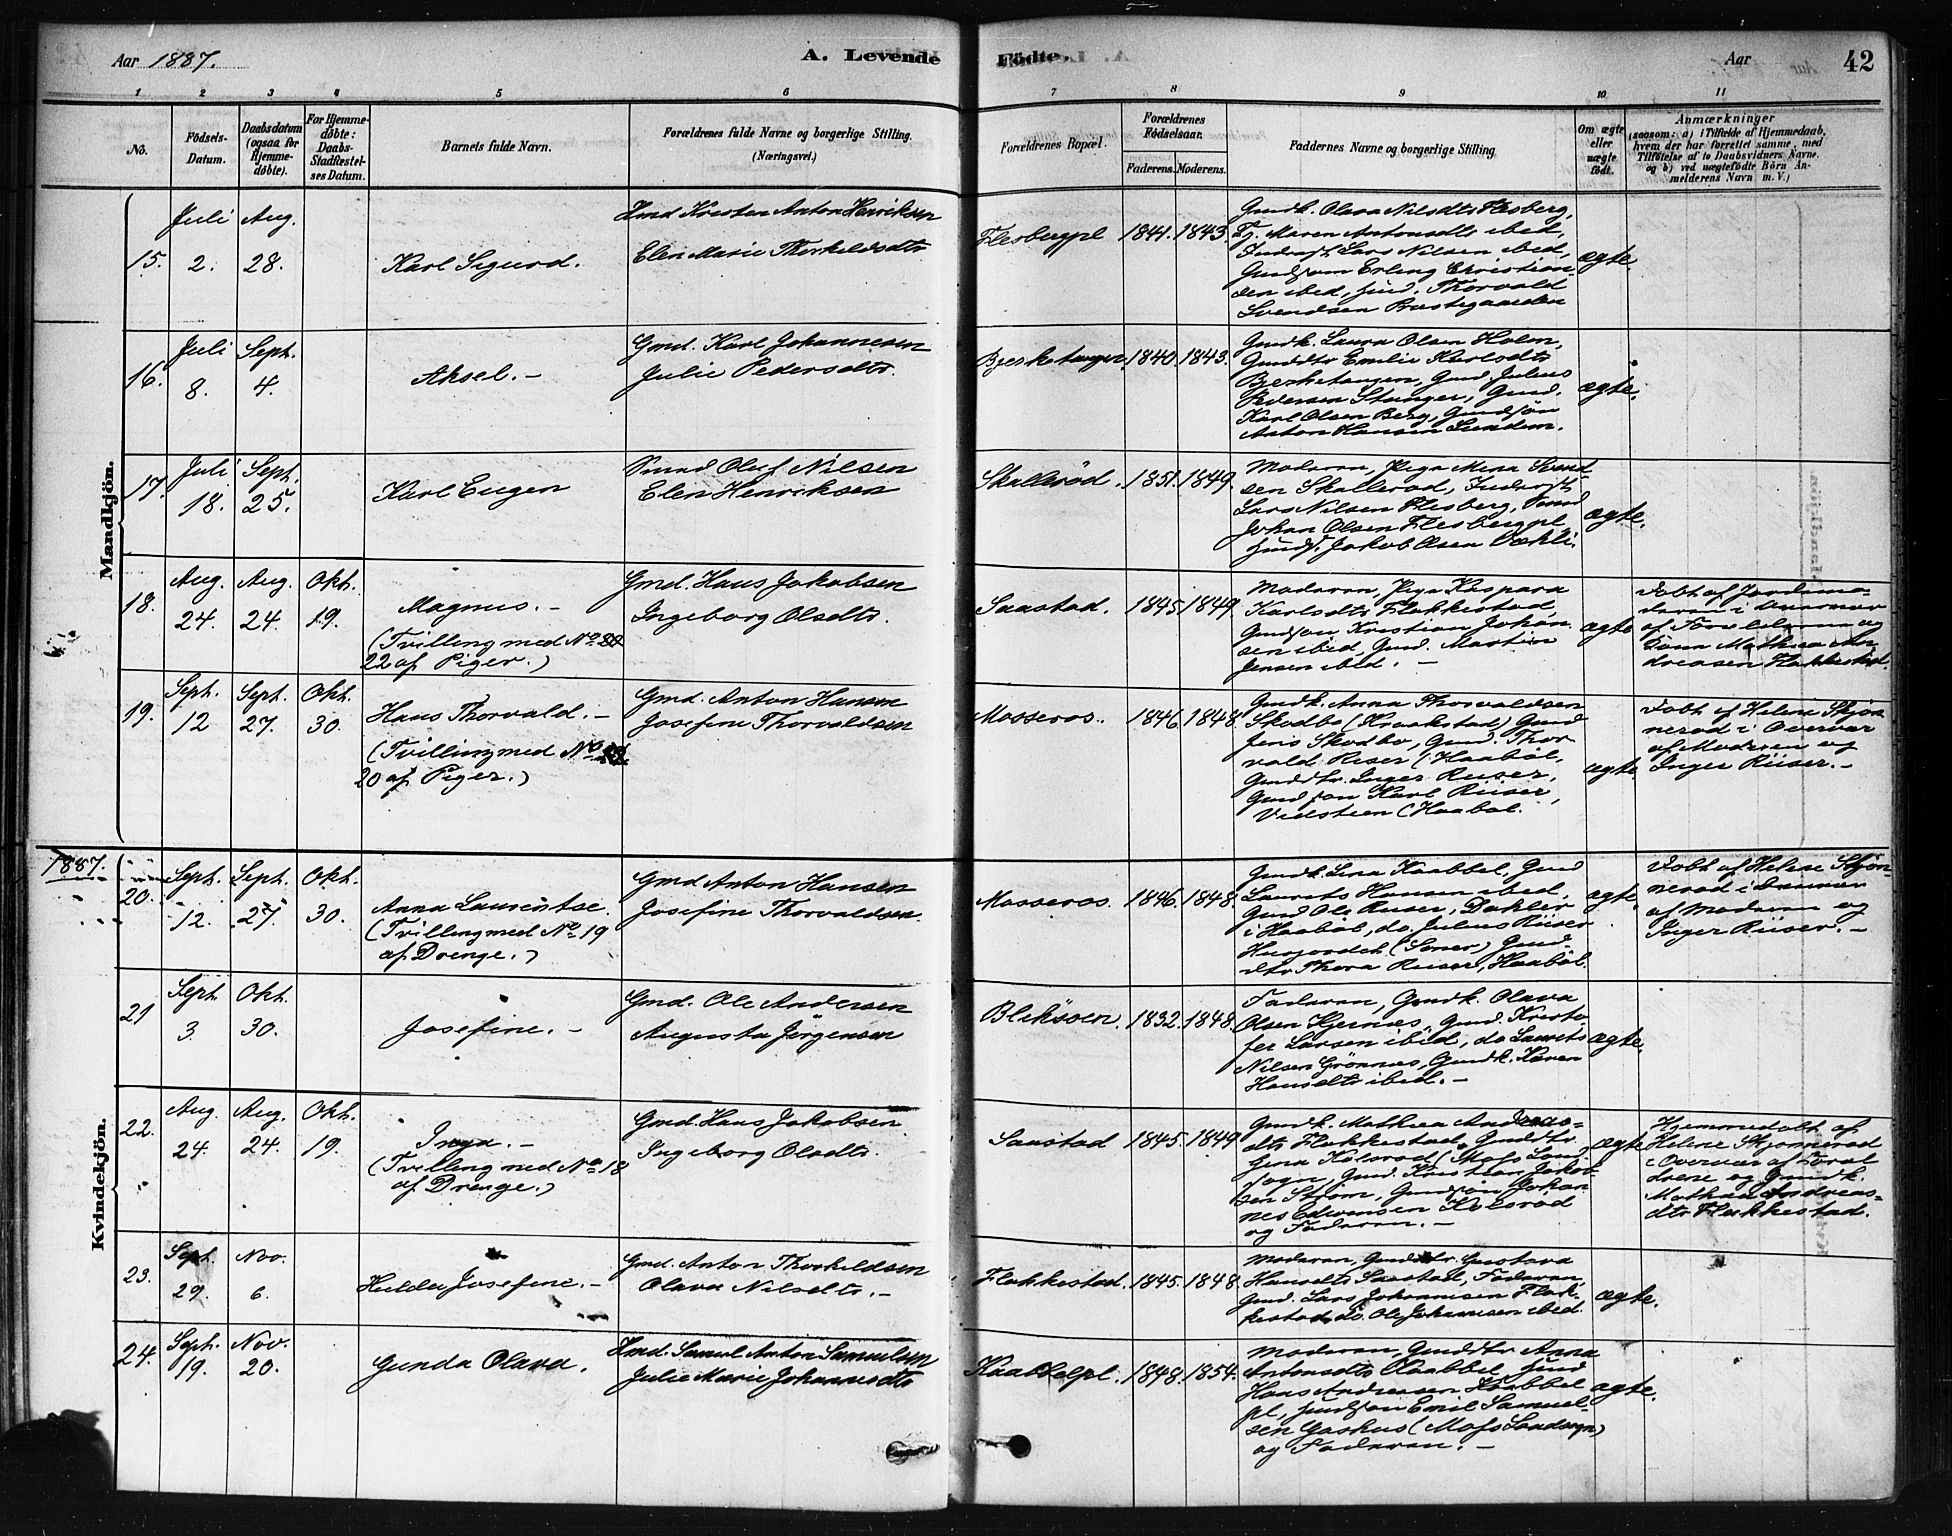 Aar 1887.
A. Levende
Födte.
Aar
42
1
2
3
4
5
6
7
8
9
10
11
No.
Födsels-
Datum.
Daabsdatum
(ogsaa for
Hjemme-
döbte).
For Hjemme-
döbte:
Daabs-
Stadfæstel-
ses Datum.
Barnets fulde Navn.
Forældrenes fulde Navne og borgerlige Stilling.
(Næringsvei.)
Forældrenes Bopæl.
Forældrenes
Födselsaar.
Faderens.
Moderens.
Faddernes Navne og borgerlige Stilling
Om ægte
eller
uægte
født.
Anmærkninger
(saasom: a) i Tilfælde af Hjemmedaab,
hvem der har forrettet samme, med
Tilföielse af to Daabsvidners Navne,
og b) ved uægtefödte Börn An-
melderens Navn m. V.)
Mandkjön.
15.
Juli
2.
Aug.
28.
Karl Sigurd.
Hmd Kristen Anton Henriksen
Elen Marie Thorkildsdtr
Flesbergpl
1841.
1843.
Gmdk. Olava Nilsdtr Flesberg,
Pg. Maren Antonsdtr ibid,
Inderst Lars Nilsen ibid,
Gmdsøn Erling Christian-
sen ibid, Hmd. Thorvald
Svendsen Præstegaarden
ægte.
16.
Juli
8.
Sept.
4.
Aksel. -
Gmd. Karl Johannesen
Julie Pedersdtr.
Bjerketangen
1840.
1843.
Gmdk. Laura Olsen Holm,
Gmddtr Emilie Karlsdtr
Bjerketangen, Gmd. Julius
Pedersen Stunger, Gmd.
Karl Olsen Berg, Gmdsøn
Anton Hansen Sundem.
ægte.
17.
Juli
18.
Sept.
25.
Karl Eugen
Smed Oluf Nilsen
Elen Henriksen
Skallerød.
1851.
1849.
Moderen, Piga Mina Svend-
sen Skallerød, Inderst
Lars Nilsen Flesberg, Smed
Johan Olsen Flesbergpl,
Hmds. Jakob Olsen Vækli.
ægte.
18.
Aug.
24.
Aug.
24.
Okt.
19.
Magnus. -
(Tvilling med No
22 af Piger.)
Gmd. Hans Jakobsen
Ingeborg Olsdtr.
Saastad.
1845.
1849
Moderen, Piga Kaspara
Karlsdtr Flakkestad,
Gmdsøn Kristian Johan-
sen ibid, Gmd. Martin
Jensen ibid. -
ægte
Døbt af Jordemo-
deren i Overvær
af Forældrene og
Kona Mathea An-
dreasen Flakkestad.
19.
Sept.
12
Sept.
27.
Okt.
30.
Hans Thorvald. -
(Tvilling med No
20 af Piger.)
Gmd. Anton Hansen
Josefine Thorvaldsen
Mosseros.
1846.
1848.
Gmdk. Anna Thorvaldsen
Skodbo (Kraakstad) Gmd
Jens Skodbo, Gmd. Thor-
vald Riser (Haabøl,
Gmddtr. Inger Riiser,
Gmdsøn Karl Riiser,
Vidsteen (Haabøl.
ægte
Døbt af Helene Skjøn-
nerød i Overvær
af Moderen og
Inger Riiser. -
1887.
Kvindekjön.
20.
Sept.
12.
Sept.
27.
Okt.
30.
Anna Laurentse.
(Tvilling med No 19
af Drenge.)
Gmd Anton Hansen
Josefine Thorvaldsen
Mosseros.
1846.
1848.
Gmdk. Lina Kaabbel, Gmd
Laurits Hansen ibid,
Gmd Ole Riiser, Dahlir
i Haabøl, do. Julius Riiser
(Soner) Gmd-
dtr Thora Riiser, Haabøl.
ægte.
Døbt af Helene Skjøn-
nerød i Overvær
af Moderen og
Inger Riiser. -
21
Sept
3.
Okt.
30.
Josefine. -
Gmd. Ole Andersen
Augusta Jörgensen
Bliksöen.
1832.
1848.
Faderen, Gmdk. Olava
Olsen Kjernæs, Gmd. Kristo-
fer Larsen ibid, do Laurits
Nilsen Grönnes, Gmdk. Karen
Hansdtr ibid. -
ægte.
22.
Aug.
24.
Aug.
24.
Okt.
19.
Inga. -
(Tvilling med No 18
af Drenge.)
Gmd. Hans Jakobsen
Ingeborg Olsdtr.
Saastad
1845.
1849
Gmdk. Mathea Andreas-
dtr Flakkestad, Gmddtr.
Jena Kolsrød (Moss Land-
sogn, Gmd. Kristian Jakob-
sen Strøm, Gmdsøn Johan-
nes Edvardsen Kolsrød
og Faderen. -
ægte
Hjemmedøbt af
Helene Skjønnerød
i Overvær af Foræl-
drene og Gmdk.
Mathea Andreas-
dtr Flakkestad.
23.
Sept.
29.
Nov.
6.
Hulda Josefine. -
Gmd. Anton Thorkildsen
Olava Nilsdtr. -
Flakkestad.
1845.
1848
Moderen, Gmddtr. Gustava
Hansdtr Saastad, Faderen,
Gmd. Lars Johannesen Flak-
kestad, do. Ole Johannesen ibid
ægte.
24.
Sept.
19.
Nov.
20.
Gunda Olava.
Hmd. Samuel Anton Samuelsen
Julie Marie Johannesdtr
Kaabbelpl.
1848.
1854.
Moderen, Gmddtr Anna
Antonsdtr Kaabbel, Hmd
Hans Andreasen Kaabbel
pl, Hmdsøn Emil Samuel-
sen Gashus (Moss Landsogn)
og Faderen. -
ægte.